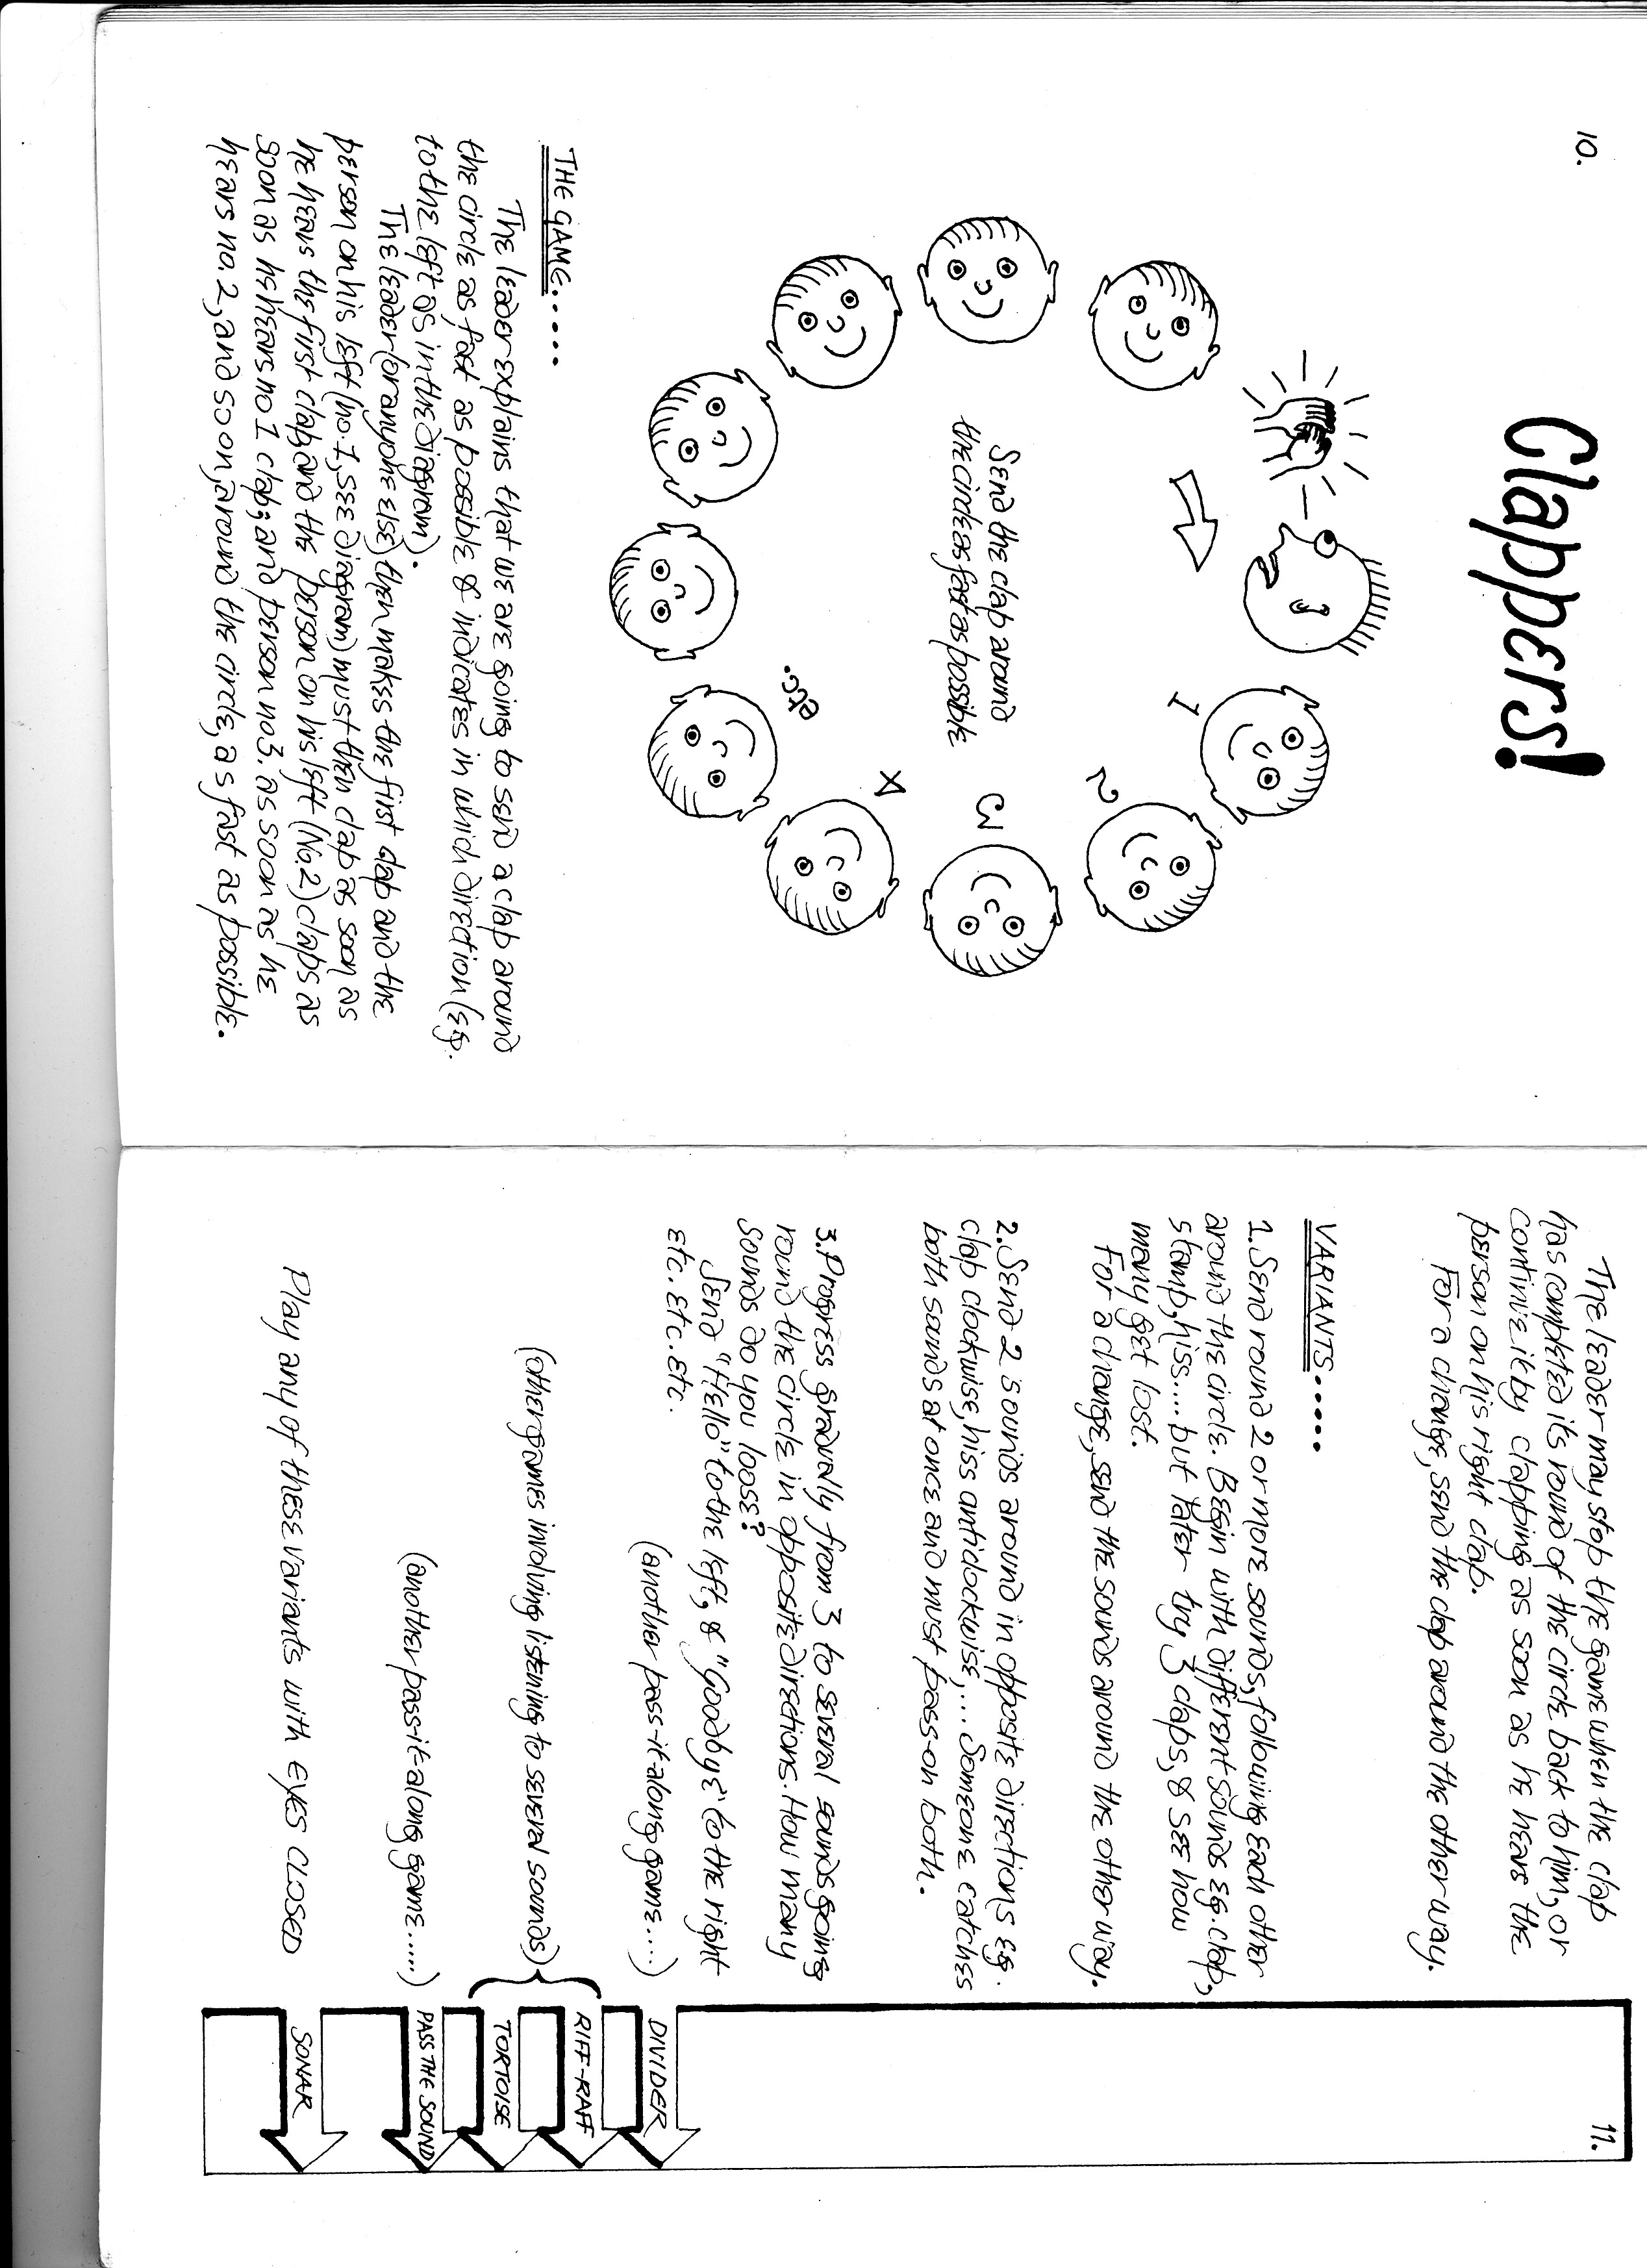 10.
Clappers!
1
2
3
4
etc.
Send the clap around
the circle as fast as possible
THE GAME.....
The leader explains that we are going to send a clap around
the circle as fast as possible & indicates in which direction (eg.
to the left as in the diagram).
The leader (or anyone else) then makes the first clap and the
person on his left (no.1, see diagram) must then clap as soon as
he hears the first clap and the person on his left (No.2) claps as
soon as he hears no 1 clap; and person no3. as soon as he
hears no.2, and so on, around the circle, as fast as possible.
11.
The leader may stop the game when the clap
has completed its round of the circle back to him, or
continue it by clapping as soon as he hears the
person on his right clap.
For a change, send the clap around the other way.
VARIANTS.....
1. Send round 2 or more sounds, following each other
around the circle. Begin with different sounds eg. clap,
stamp, hiss.... but later try 3 claps, & see how
many get lost.
For a change, send the sounds around the other way.
2. Send 2 sounds around in opposite directions eg.
clap clockwise, hiss anticlockwise,... Someone catches
both sounds at once and must pass on both.
3. Progress gradually from 3 to several sounds going
round the circle in opposite directions. How many
sounds do you loose?
Send "Hello" to the left, & "Goodbye" to the right
etc. etc. etc.
(another pass-it-along game....)
DIVIDER
RIFF-RAFF
(other games involving listening to several sounds)
TORTOISE
(another pass-it-along game.....)
PASS THE SOUND
Play any of these variants with EYES CLOSED
SONAR